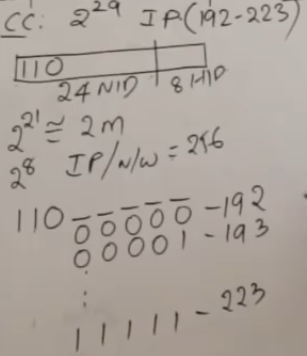 CC: 2^29 IP(192-223)
110
24 NID 8 HID
2^21 ≅ 2m
2^8 IP/N/W = 256
110 _ _ _ _ _ -192
0 0 0 0 0
0 0 0 0 1 - 193
:
:
1 1 1 1 1 - 223